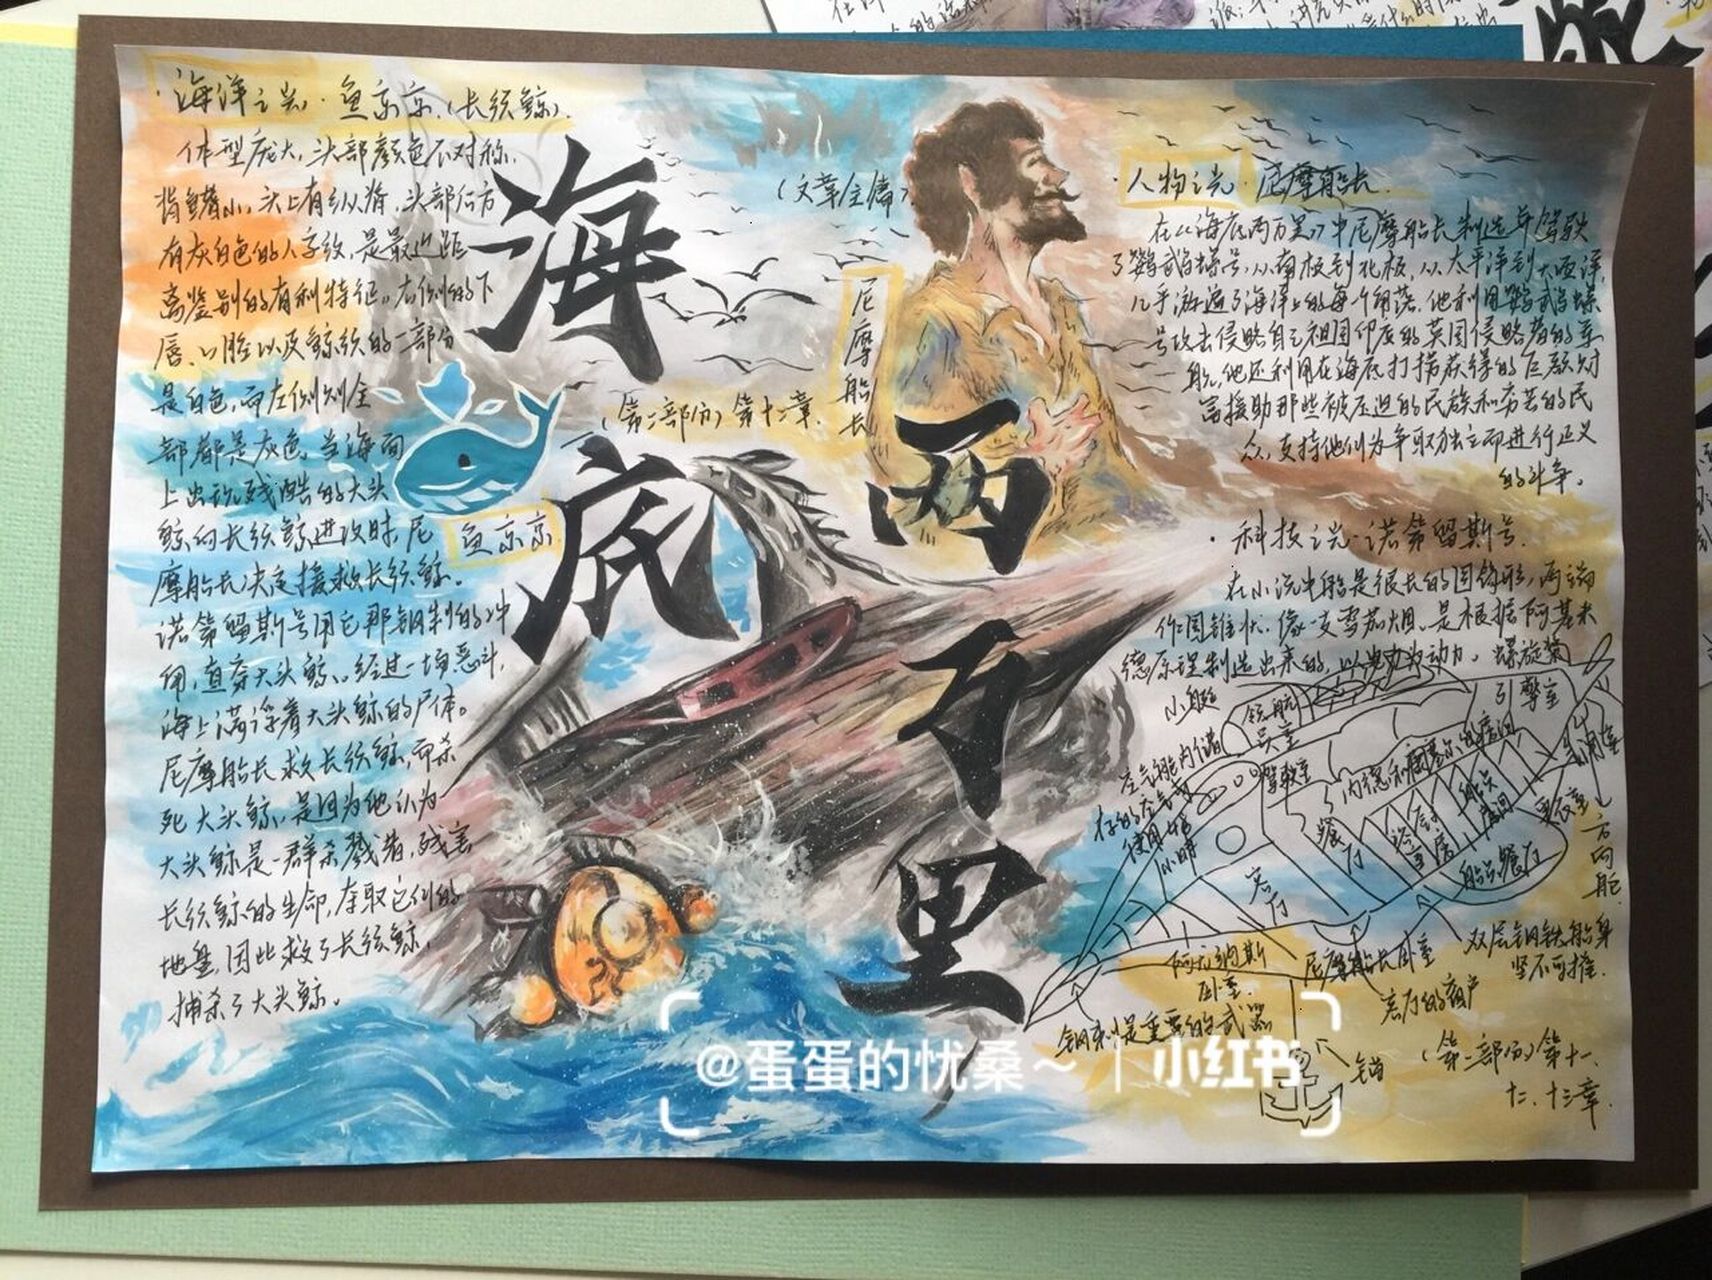 海洋之光·鱼京京(长须鲸)
体型庞大,头部颜色不对称,
背鳍小,头上有纵脊,头部后方
有灰白色的人字纹,是最近距
离鉴别的有利特征。右侧的下
唇、口腔以及鲸须的一部分
是白色,而左侧则全
部都是灰色。当海面
上出现残酷的大头
鲸向长须鲸进攻时,尼
摩船长决定援救长须鲸。
诺第留斯号用它那钢制的冲
角,直奔大头鲸。经过一场恶斗,
海上满浮着大头鲸的尸体。
尼摩船长救长须鲸,而杀
死大头鲸,是因为他认为
大头鲸是一群杀戮者,残害
长须鲸的生命,夺取它们的
地盘,因此救了长须鲸,
捕杀了大头鲸。
鱼京京
海底
两万里
(文章主篇)
(第二部分)第十二章
尼摩船长
·人物之光·尼摩船长
在《海底两万里》中尼摩船长制造并驾驶
了鹦鹉螺号,从南极到北极,从太平洋到大西洋,
几乎游遍了海洋上的每个角落。他利用鹦鹉螺
号攻击侵略自己祖国印度的英国侵略者的军
舰,他还利用在海底打捞获得的巨额财
富援助那些被压迫的民族和穷苦的民
众,支持他们为争取独立而进行正义
的斗争。
·科技之光·诺第留斯号
在小说中船是很长的圆筒形,两端
作圆锥状.像一支雪茄烟.是根据阿基米
德原理制造出来的,以电力为动力。螺旋桨
小艇
领航
员室
引擎室
驾驶室
内德和康塞尔的房间
空气舱内储
存的空气
客厅
餐厅
浴室
厨房
船员
房间
船员餐厅
方向舵
双层钢铁船身
坚不可摧.
阿龙纳斯
卧室.
尼摩船长卧室
客厅的窗户
钢刺是重要的武器
锚
(第一部分)第十一
十二、十三章.
@蛋蛋的忧桑~ | 小红书